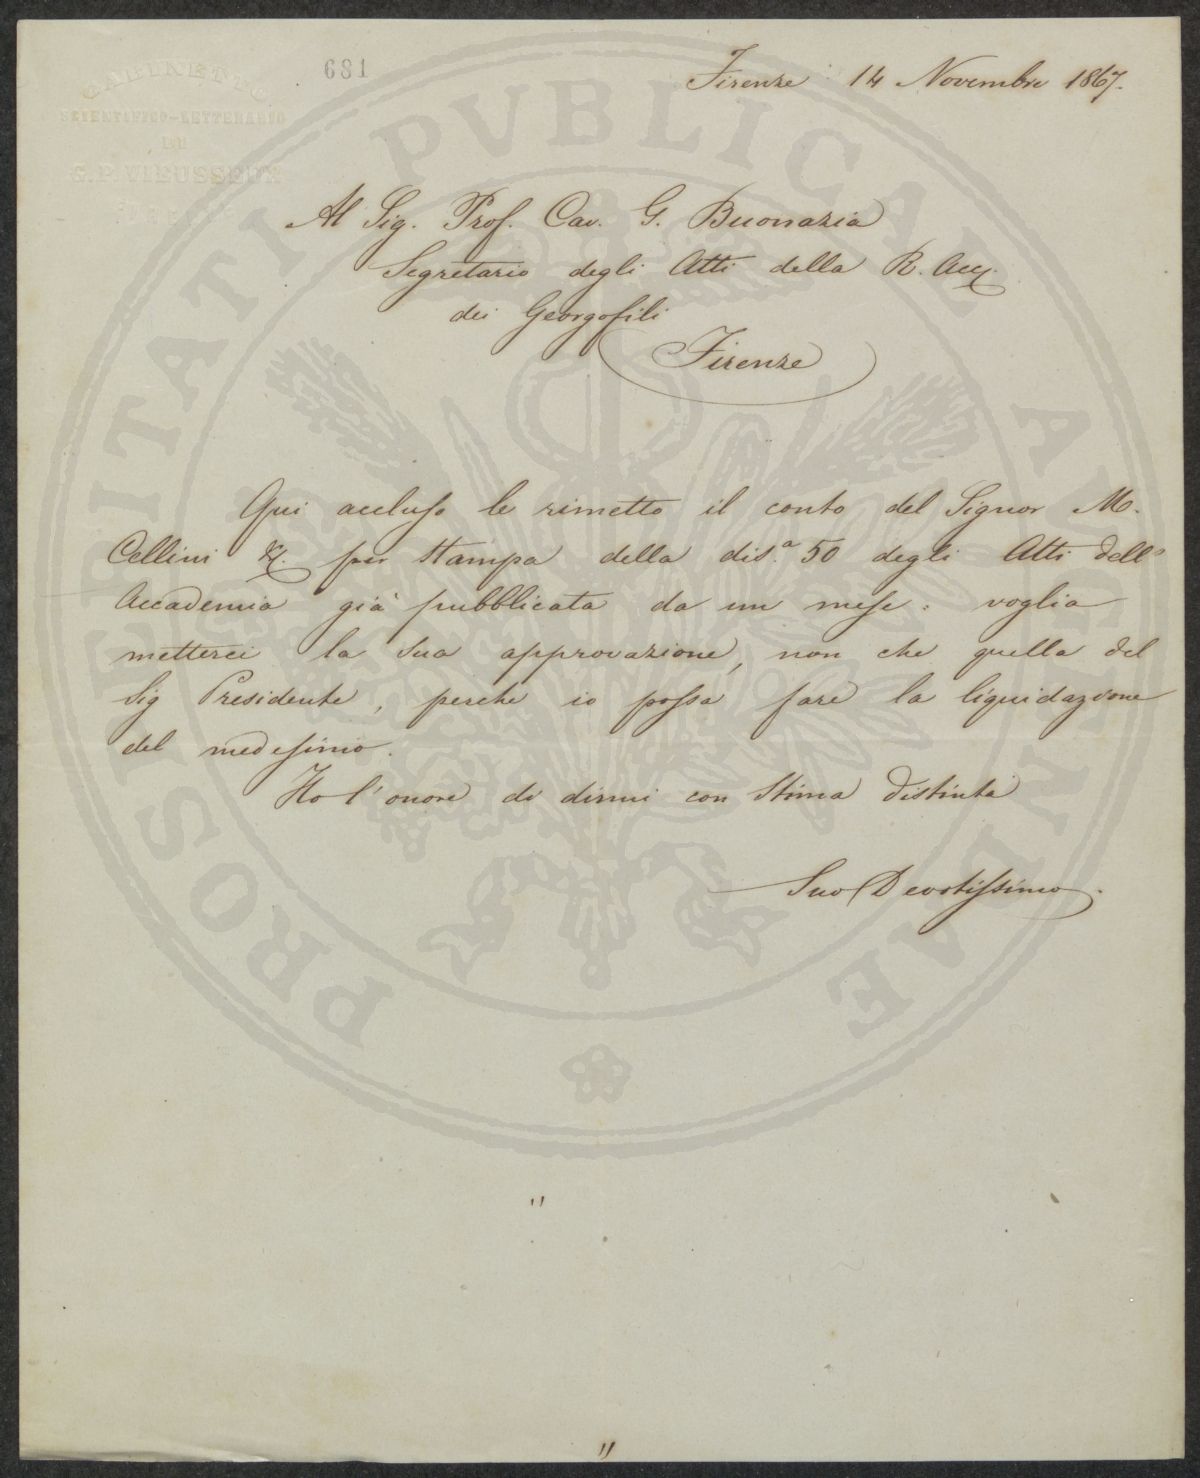 GABINETTO
SCIENTIFICO-LETTERARIO
DI
G. P. VIEUSSEUX
681
Firenze 14 Novembre 1867.
Al Sig. Prof. Cav. G. Buonazia
Segretario degli Atti della R. Acc.
dei Georgofili
Firenze
Qui accluso le rimetto il conto del Signor M.
Cellini &. per stampa della dis.ª 50 degli Atti dell'
Accademia già pubblicata da un mese: voglia
metterci la sua approvazione, non che quella del
Sig Presidente, perche io possa fare la liquidazione
del medesimo.
Ho l'onore di dirmi con stima distinta
Suo Devotissimo.
PROSPERITATI PVBLICAE AVGENDAE